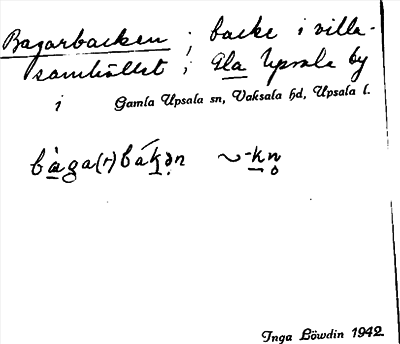 Bagarbacken ; backe i villa-
samhället i Gla Upsala by
i Gamla Upsala sn, Vaksala hd, Upsala l.
bàga(r)bákən ~ -kn̥
Inga Löwdin 1942